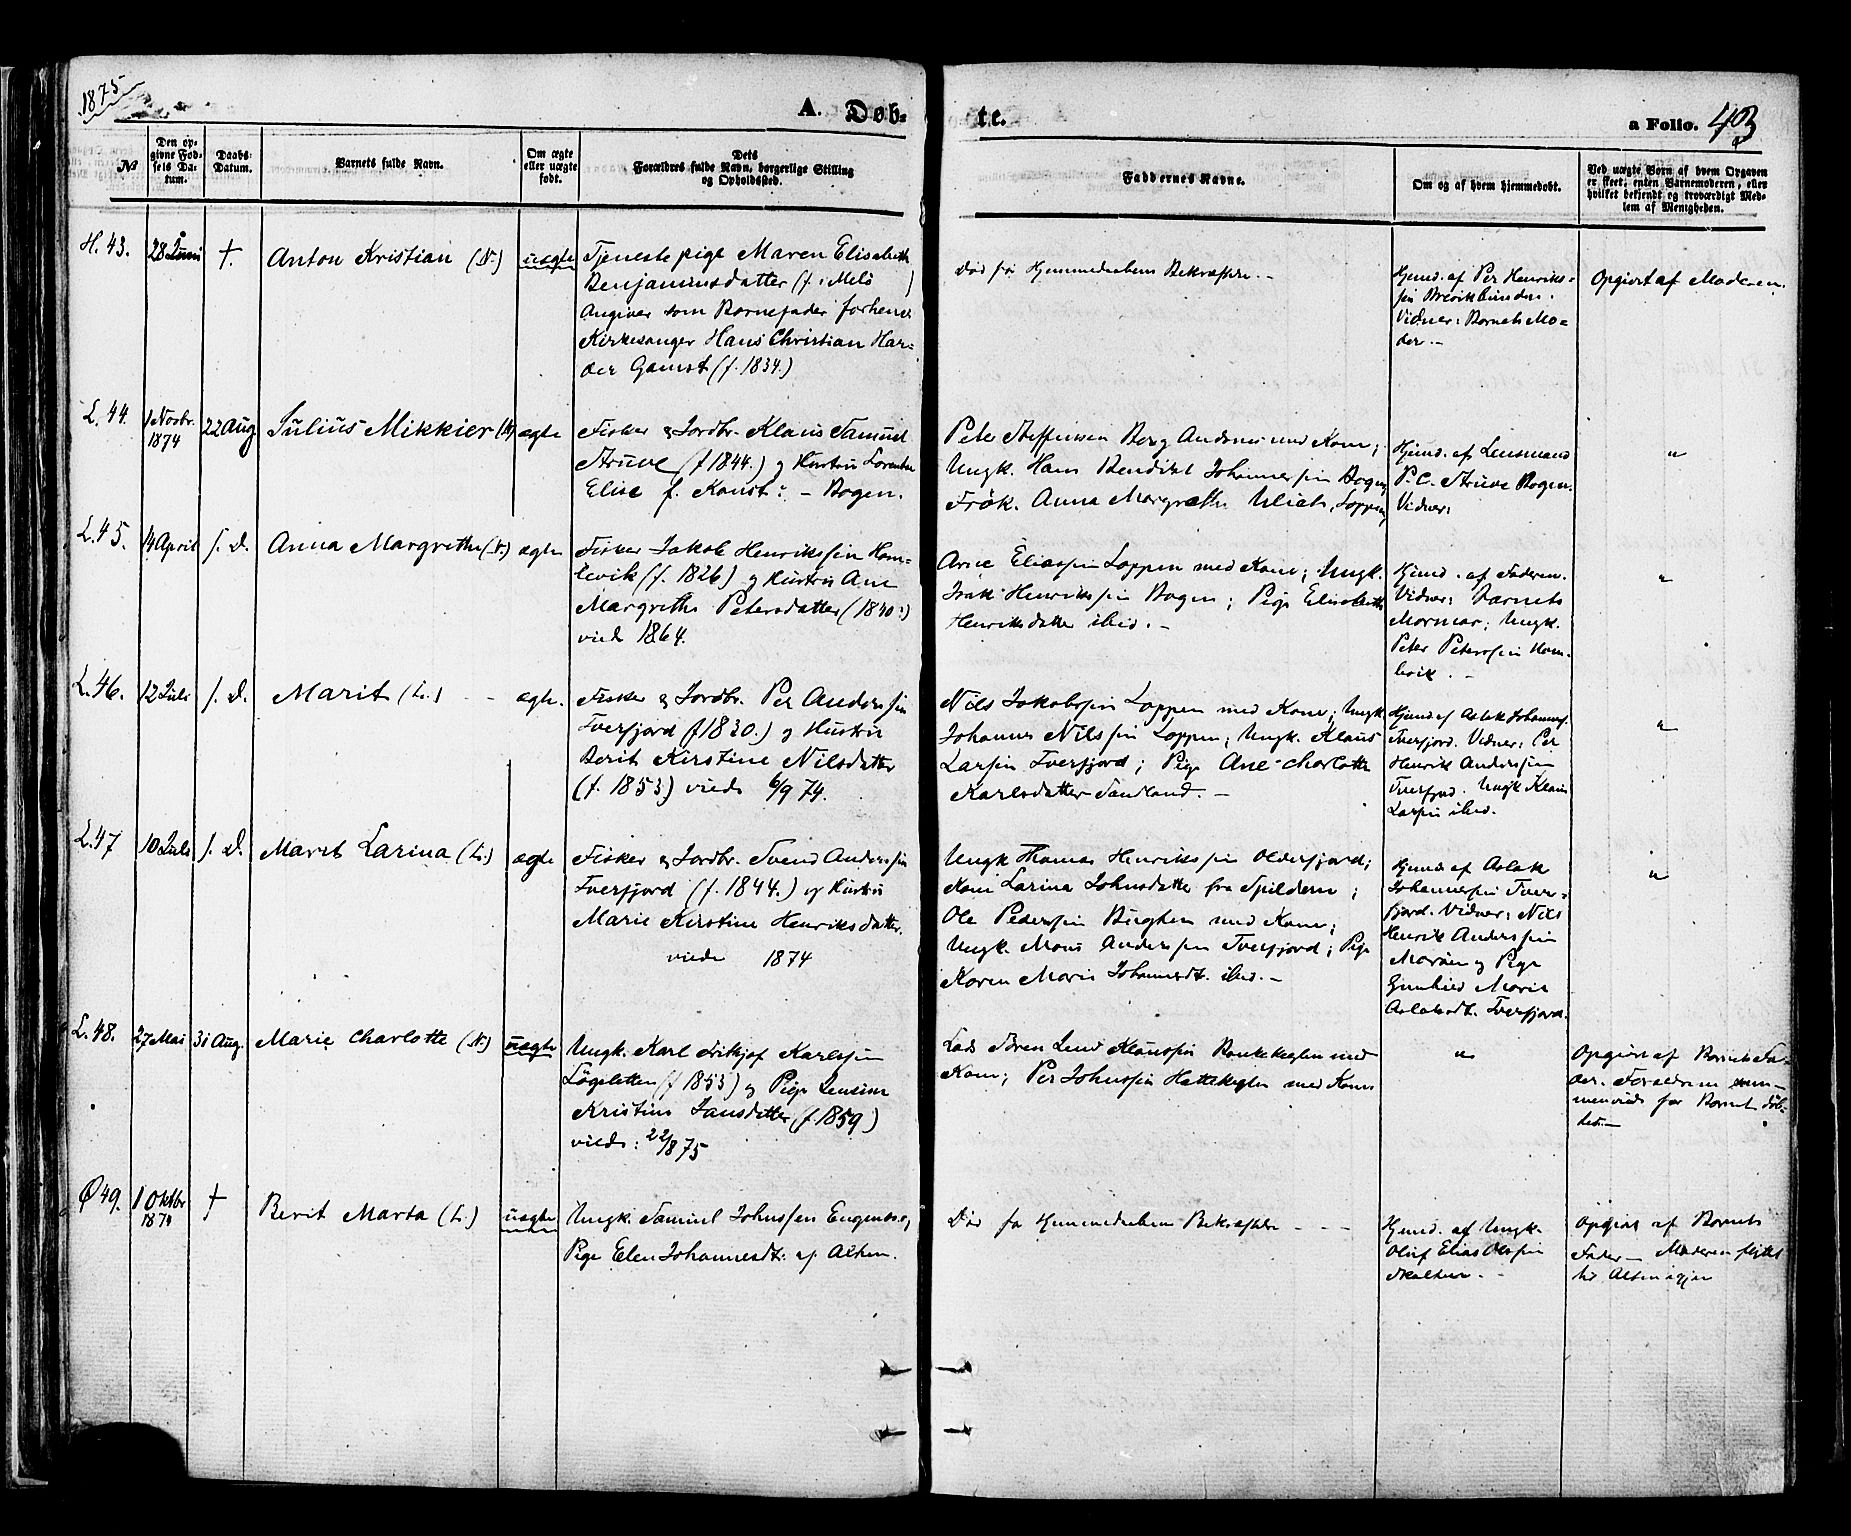 1875
A. Døb-
te.
a Folio. 43
№
Den op-
givne Fød-
sels Da-
tum.
Daabs-
Datum.
Barnets fulde Navn.
Om ægte
eller uægte
født.
Dets
Forældres fulde Navn, borgerlige Stilling
og Opholdssted.
Faddernes Navne.
Om og af hvem hjemmedøbt.
Ved uægte Børn af hvem Opgaven
er skeet, enten Barnemoderen, eller
hvilket bekjendt og troværdigt Med-
lem af Menigheden.
H. 43.
28 Juni
†.
Anton Kristian (N.)
uægte
Tjenestepige Maren Elisabeth
Benjaminsdatter (f. i Melö )
Angiver som Barnefader forhenv.
Kirkesanger Hans Christian Har-
der Gamst (f. 1834.)
Död før Hjemmedaabens Bekræftelse. -
Hjmd. af Per Henriks-
sen
Vidner: Barnets Mo-
der. -
Opgivet af Moderen.
L. 44.
1 Novbr.
1874
22 Aug
Julius Mikkier (N)
ægte
Fisker & Jordbr. Klaus Samuel
Struve (f 1844.) og Hustru
Elise f. - Bogen.
Peter Steffensen Berg Andsnes med Kone;
Ungk. Hans Bendikt Johannessen Bogen
Frök. Anna Margrethe Ulich, Loppen
Hjmd. af Lensmand
P. C. Struve Bogen.
Vidner:
"
L. 45.
14 April
s. D.
Anna Margrethe (N.)
ægte
Fisker Jakob Henrikssen Ham-
levik (f. 1826) og Hustru Ane
Margrethe Petersdatter (1840:)
vied 1864.
Arne Eliassen Loppen med Kone; Ungk.
Isak Henrikssen Bogen; Pige Elisabeth
Henriksdatter ibid. -
Hjmd. af Faderen.
Vidner: Barnets
Mormor; Ungk.
Peter Peterssen Ham-
levik. -
"
L. 46.
12 Juli
s. D.
Marit (L.) - -
ægte.
Fisker & Jordbr. Per Anderssen
Tverfjord (f 1830.) og Hustru
Berit Kirstine Nilsdatter
(f. 1853.) viede 6/9 74.
Nils Jakobssen Loppen med Kone; Ungk.
Johannes Nilssen Loppen; Ungk. Klaus
Larsen Tverfjord; Pige Ane Charlotte
Karlsdatter Sandland. -
Hjmd af Aslak Johannes.
Tverfjord. Vidner: Per
Henrik Anderssen
Tverfjord. Ungk Klaus
Larsen ibid.
"
L. 47
10 Juli
s. D.
Marit Larina (L.)
ægte
Fisker & Jordbr. Svend Anderssen
Tverfjord (f. 1844.) og Hustru
Marie Kirstine Henriksdatter.
viede 1874
Ungk Thomas Henrikssen Oldersfjord;
Kone Larina Johnsdatter fra Spildern;
Ole Pederssen med Kone;
Ungk. Mons Anderssen Tverfjord; Pige
Karen Marie Johannesdt. ibid. -
Hjmd af Aslak
Johannessen Tver-
fjord. Vidner: Nils
Henrik Anderssen
og Pige
Gunhild Marie
Aslaksdt. Tverfjord.
"
L. 48.
27 Mai
31 Aug.
Marie Charlotte (N.)
uægte
Ungk. Karl Fritjof Karlssen
Lögsletten (f 1853) og Pige
Kristine Jansdatter (f. 1859)
viede: 22/8 75
Lars Sören Lund Klaussen med
Kone; Per Johnssen med Kone
"
Opgivet af Barnets Fa-
der. Forældrene sam-
menviede før Barnets Fød-
Ø 49.
1 Oktbr
1874
†
Berit Marta (L.)
uægte
Ungk. Samuel Johnssen og
Pige Elen Johannesdt: af Alten.
Död før Hjemmedaabens Bekræftelse - - -
Hjmd. af Ungk.
Oluf Elias Olsen
Opgivet af Barnets
Fader - Moderen flyttet
til Alten igjen